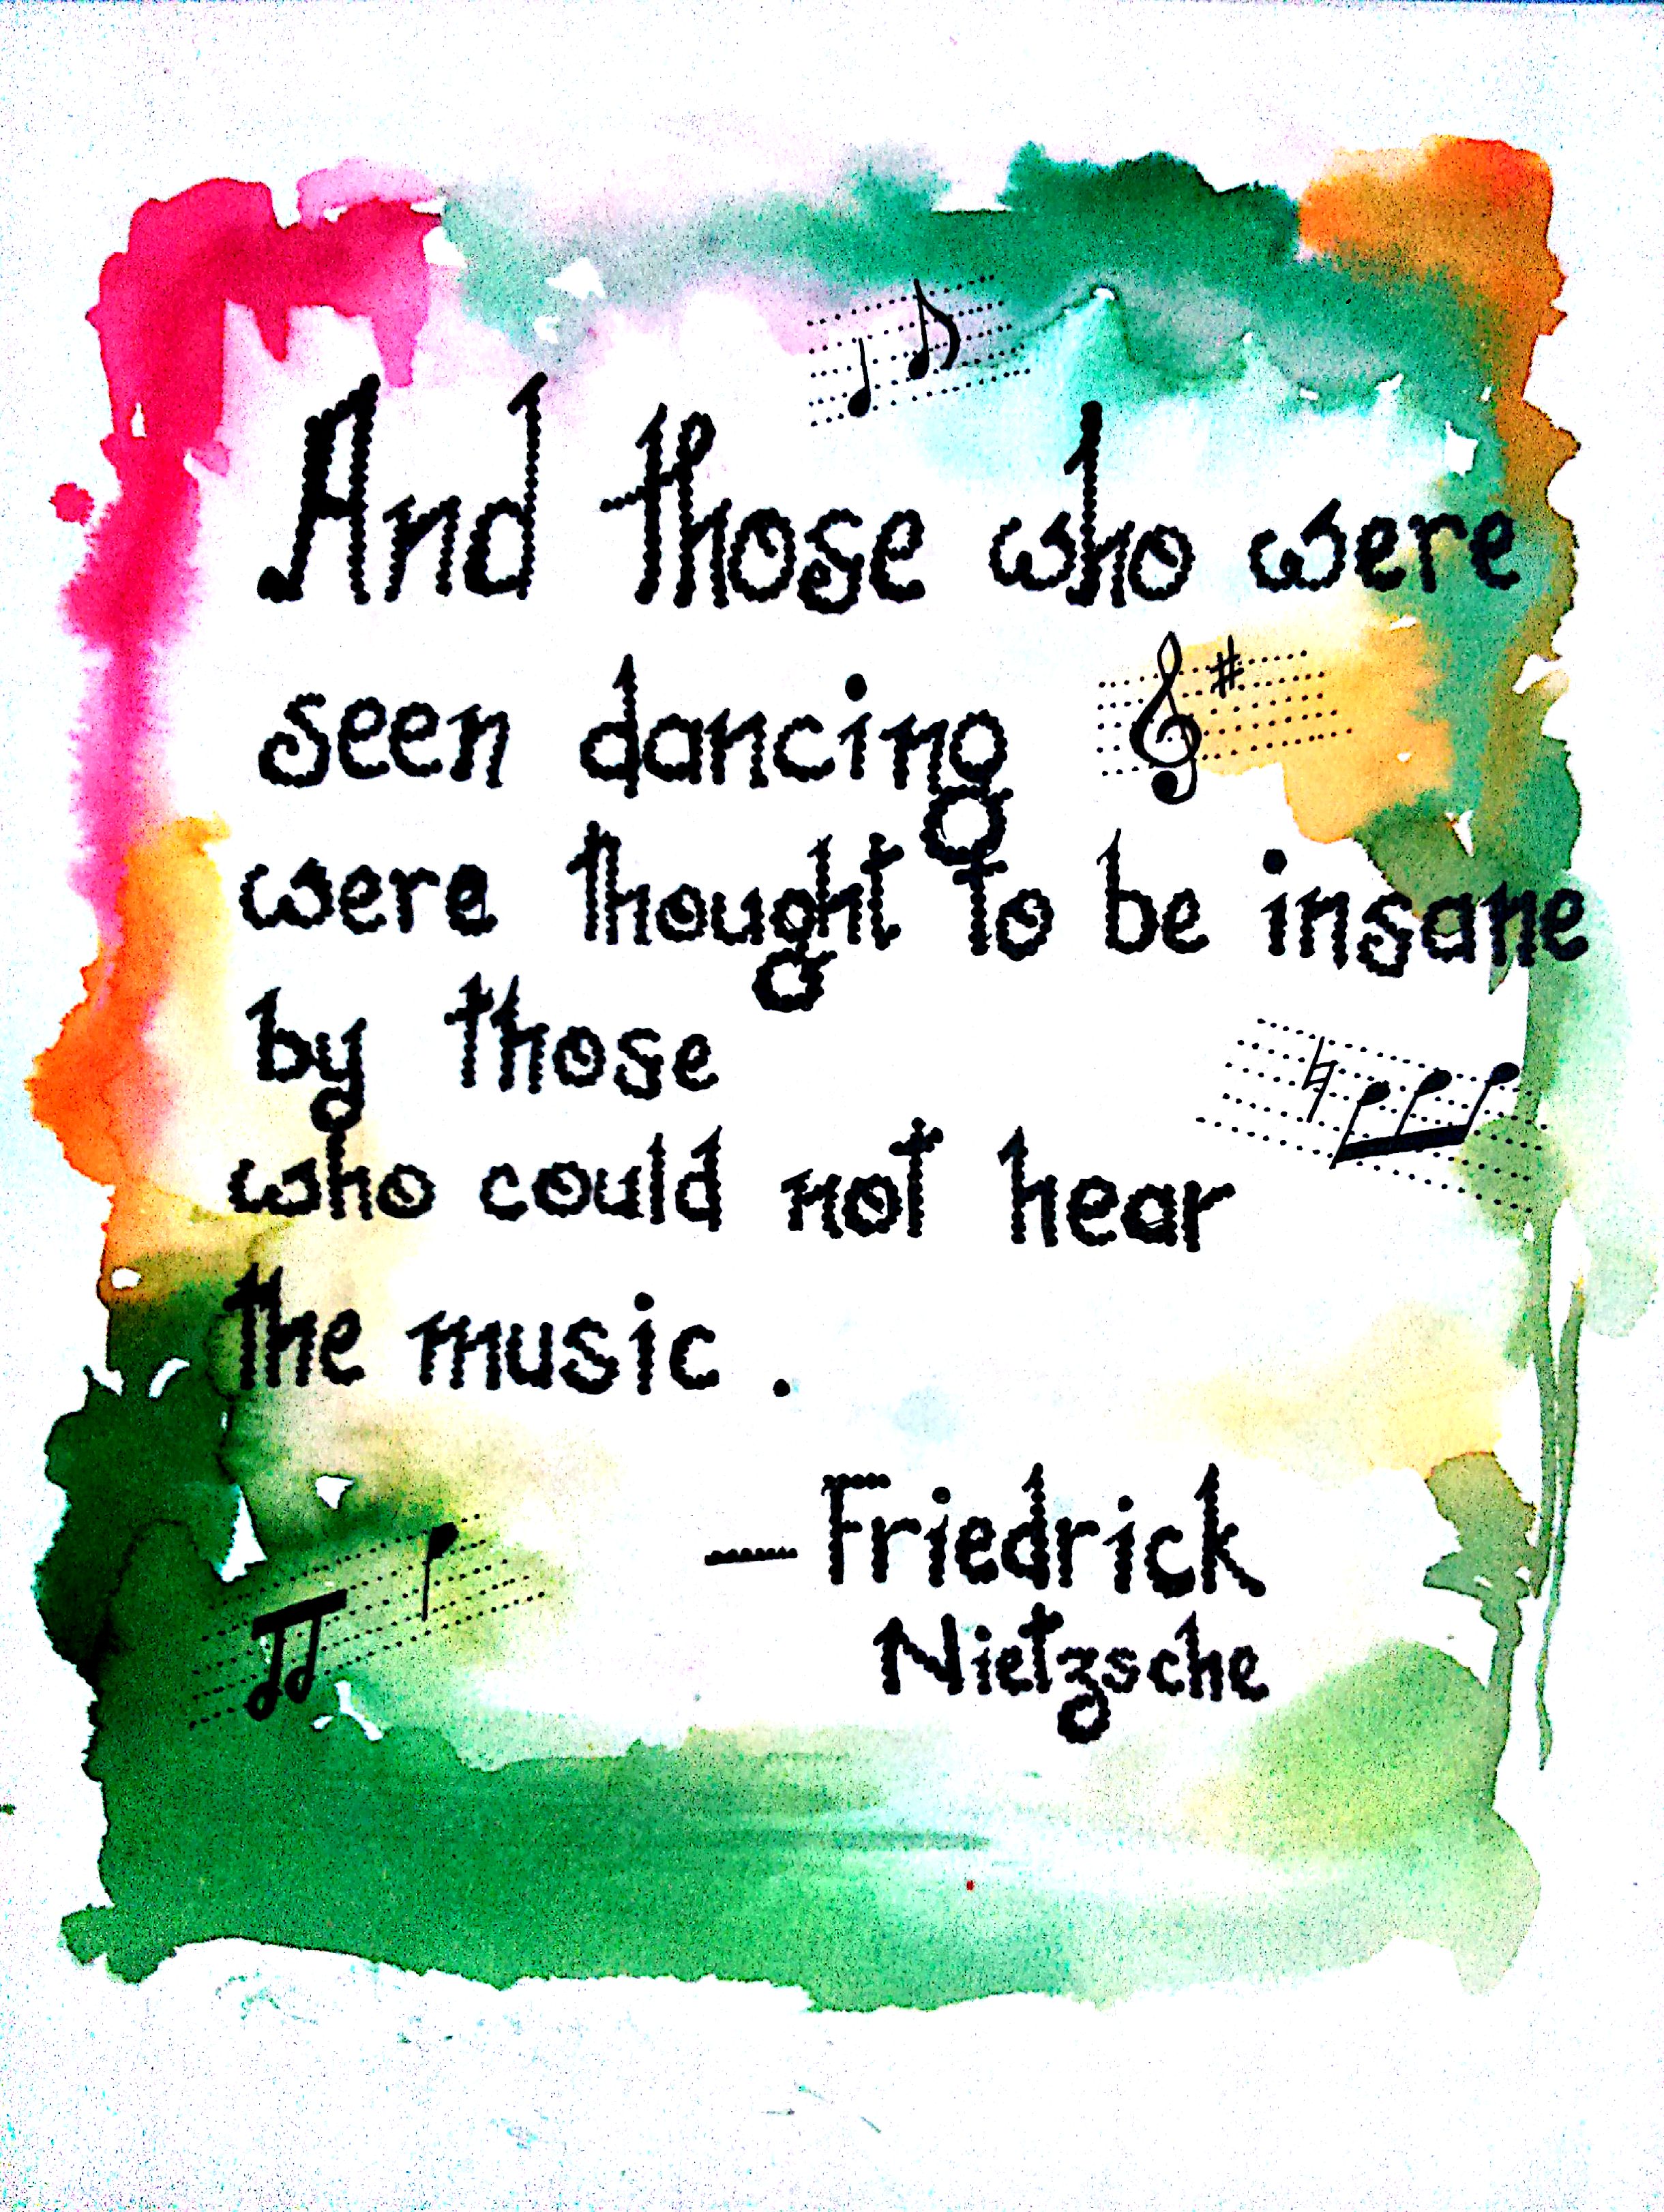 And those who were
seen dancing
were thought to be insane
by those
who could not hear
the music .
— Friedrick
Nietzsche